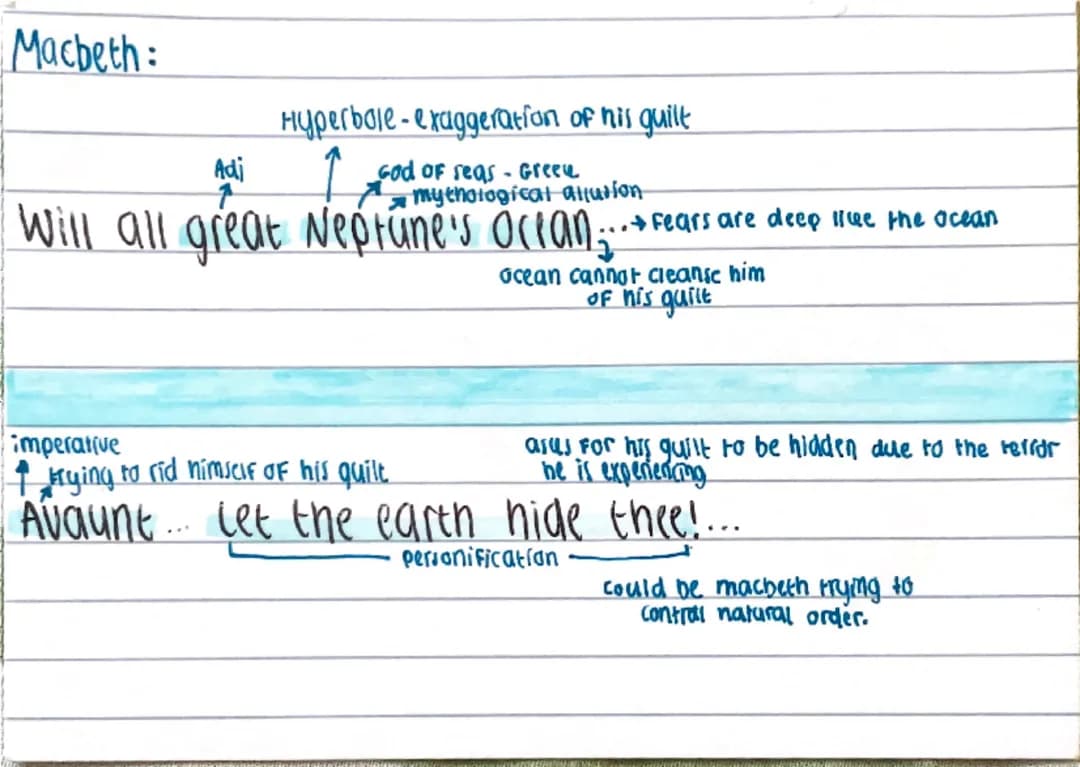 Macbeth:
Hyperbole - exaggeration of his guilt
Adj
God of seas - Greek
mythological allusion
Will all great Neptune's ocean... → Fears are deep like the ocean
ocean cannot cleanse him
of his guilt
imperative
trying to rid himself of his guilt
asks for his guilt to be hidden due to the terror
he is experiencing
Avaunt... Let the earth hide thee!...
personification
Could be macbeth trying to
control natural order.